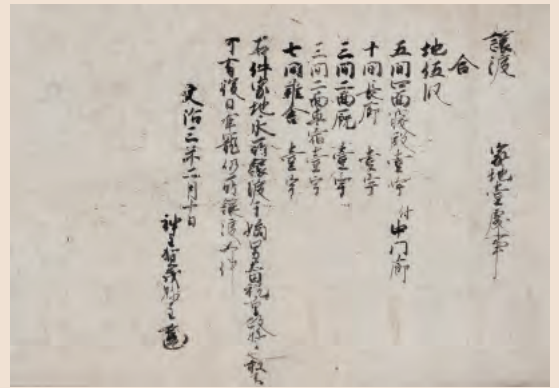 譲渡 家地壹處事
合
地伍段
五間四面寝殿壹宇 付中門廊
十間長廊 壹宇
三間二面厩 壹宇
三間二面車宿壹宇
七間雑舎 壹宇
右件家地永所譲渡于嫡男
可有後日牢籠仍所譲渡如件
文治三年二月十日
神主賀茂